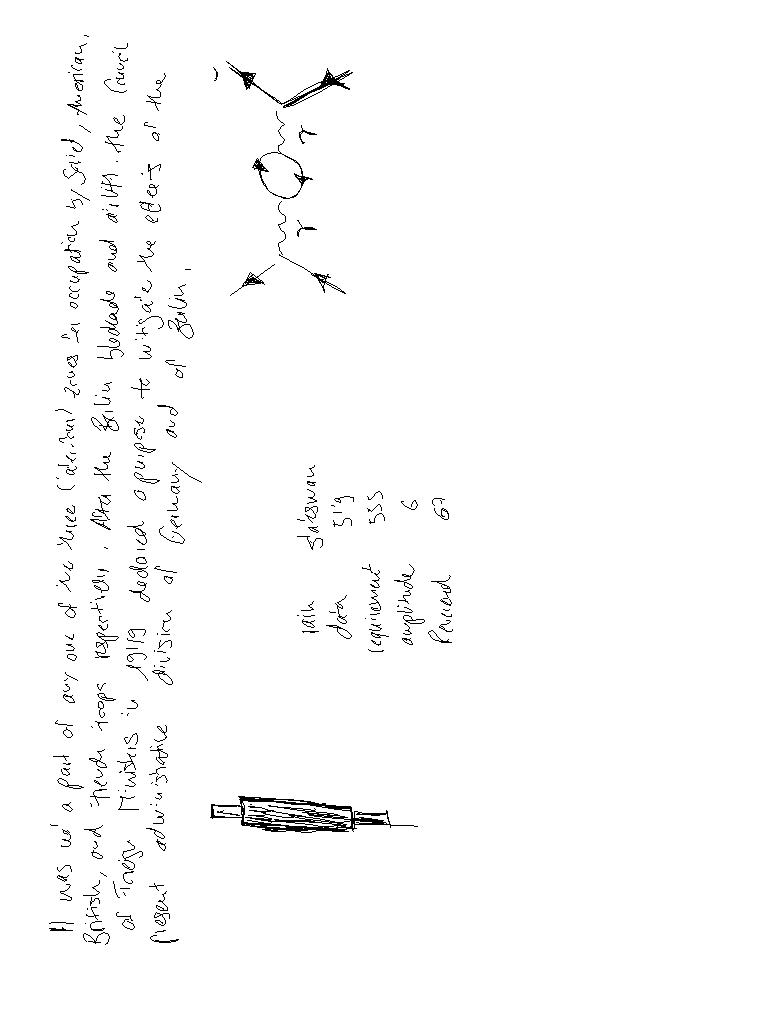 It was not a part of any one of the three (later four) zones for occupation by Soviet, American,
British, and French troops respectively. After the Berlin blockade and airlift, the Council
of Foreign Ministers in 1949 declared a purpose to mitigate the effects of the
present administrative division of Germany and of Berlin.
rain statesman
data 519
requirement 555
amplitude 6
Reverend 67
γ γ